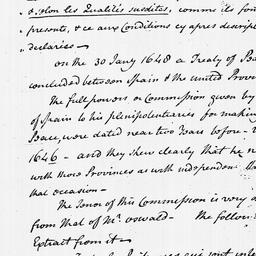 & selon les Qualités susdites, comme ils font
presents, & ce aux Conditions cy apres descript
declarées —
on the 30 Jany 1648 a Treaty of Pea
concluded between Spain & the united Provin
The full powers or Commission given by
of Spain to his plenipotentiaries for making
Peace, were dated near two Years before -
1646 - and they shew clearly that he
with those Provinces as with independent
that occasion —
The Tenor of this Commission is very
from that of Mr. Oswald - The follow
Extract from it —